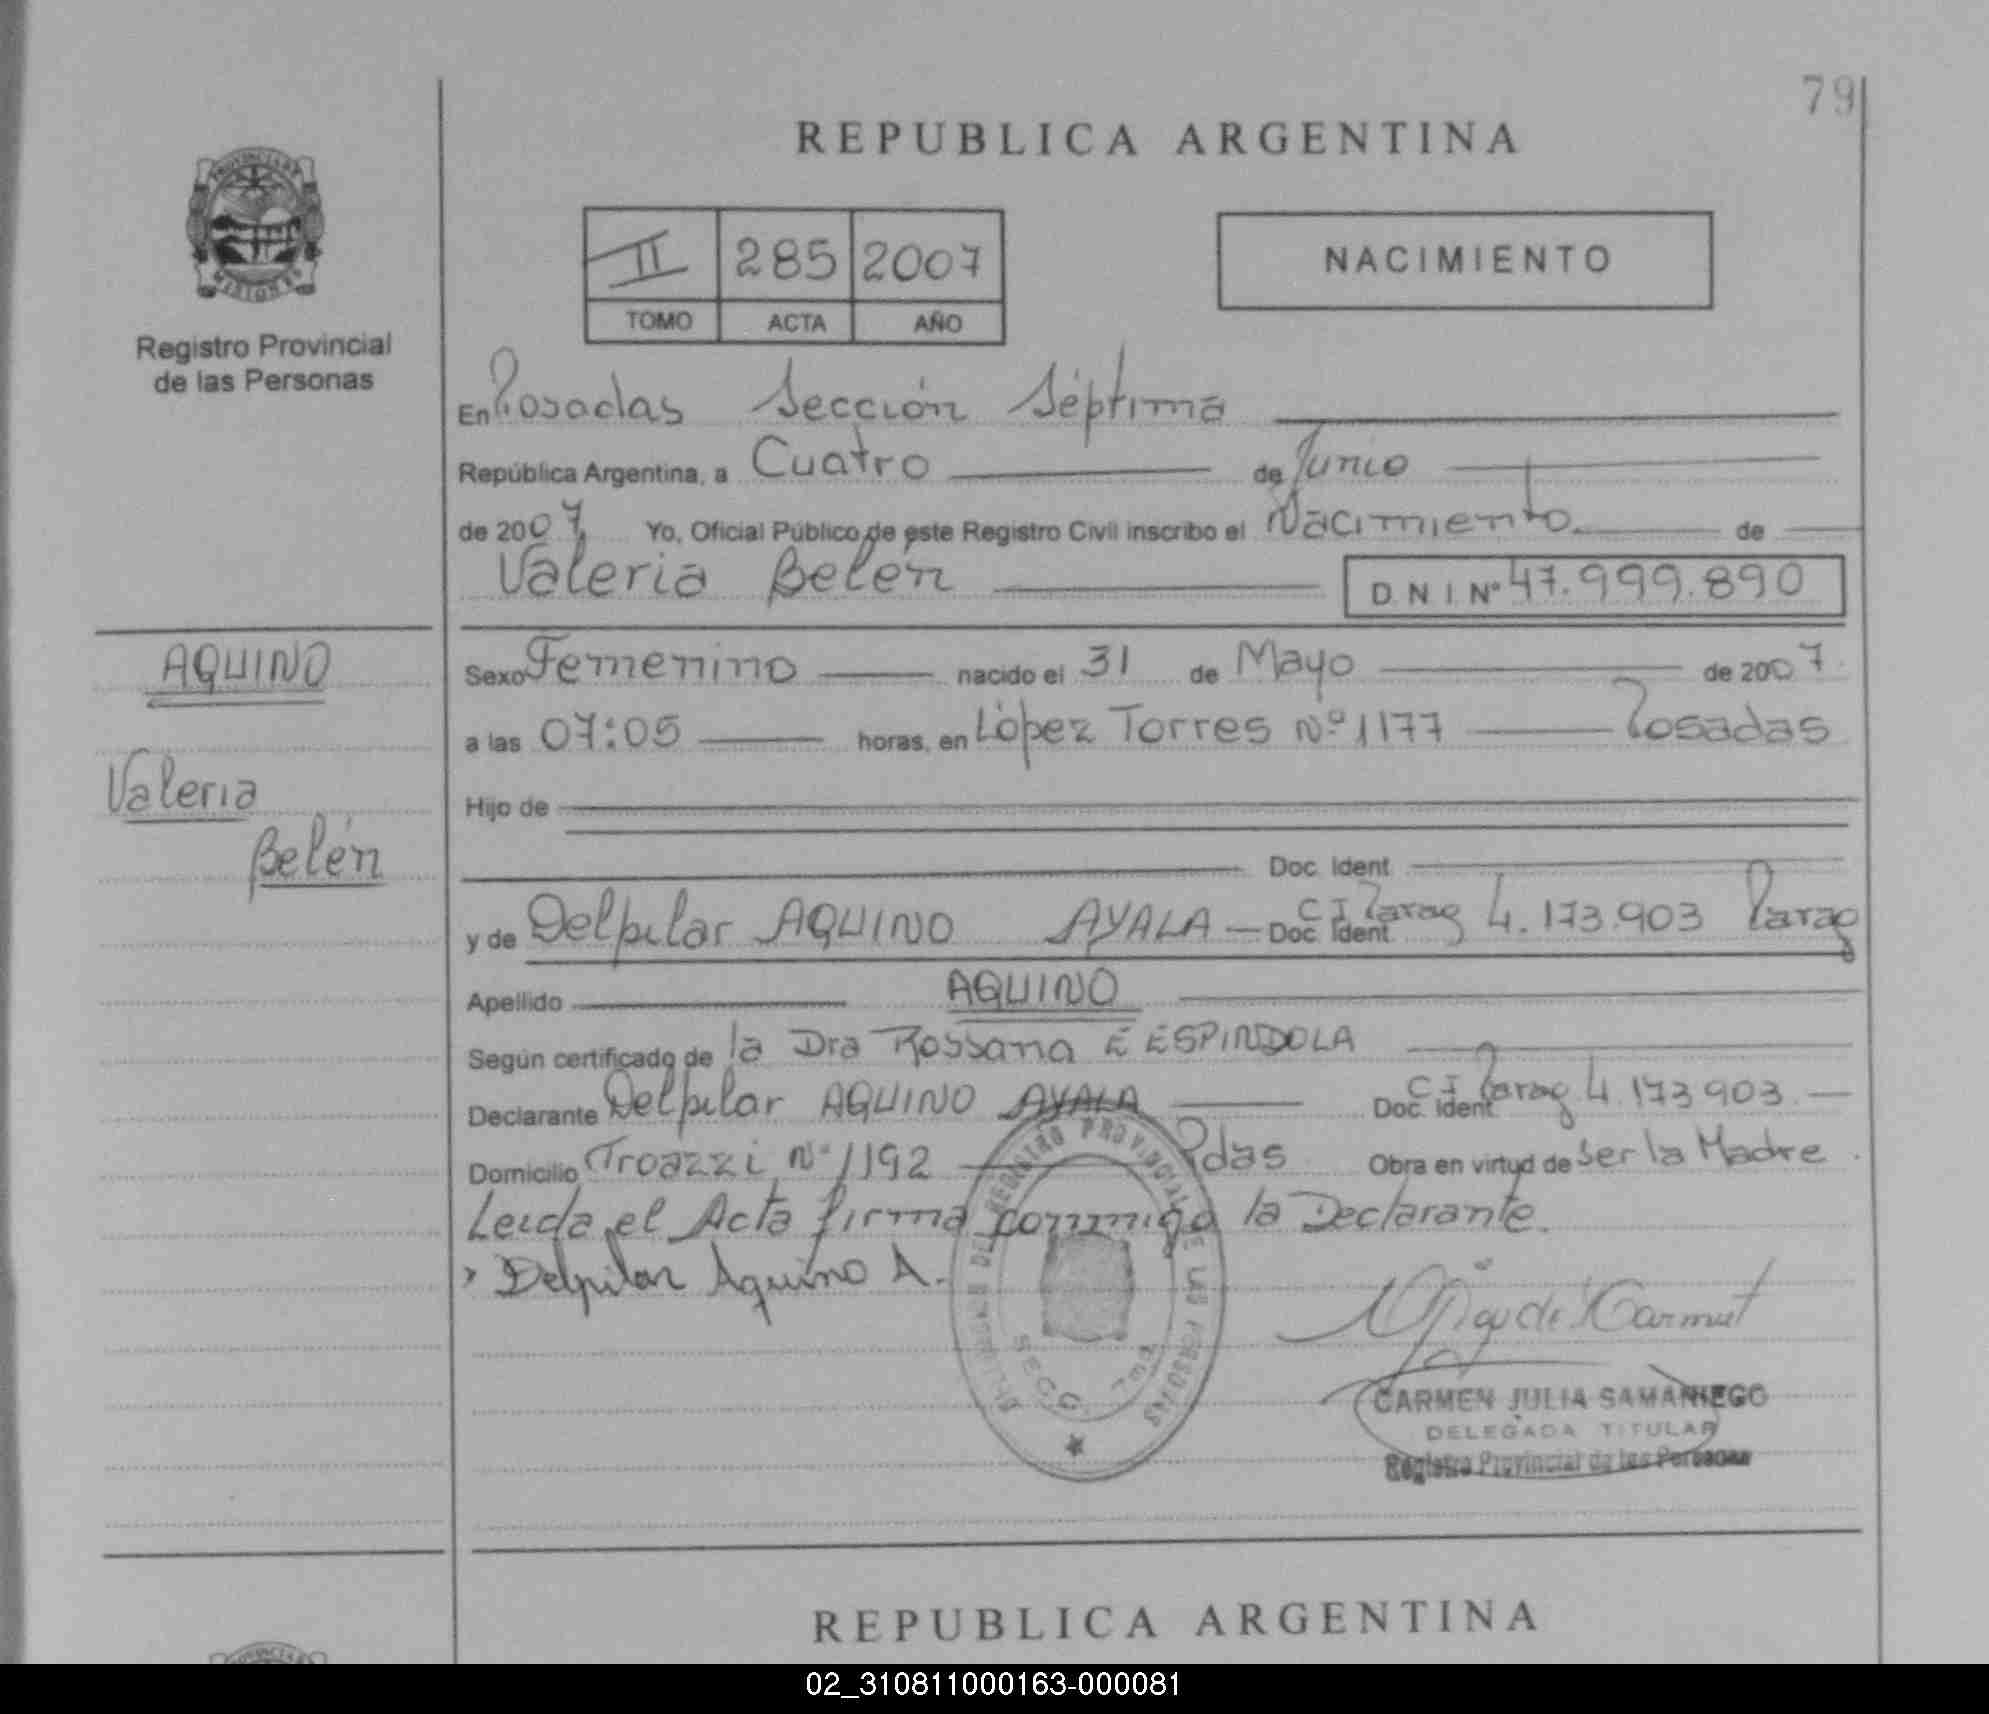 79
REPUBLICA ARGENTINA
PROVINCIA DE
MISIONES
Registro Provincial
de las Personas
II 285 2007
TOMO ACTA AÑO
NACIMIENTO
En Posadas Sección Séptima
República Argentina, a Cuatro de Junio
de 2007 Yo, Oficial Público de este Registro Civil inscribo el Nacimiento de
Valeria Belén D.N.I. Nº 47.999.890
AQUINO
Valeria
Belén
Sexo Femenino nacido el 31 de Mayo de 2007
a las 07:05 horas, en López Torres Nº 1177 Posadas
Hijo de
Doc. Ident
y de Delpilar AQUINO AYALA Doc. Ident C I Parag 4.173.903 Parag
Apellido AQUINO
Según certificado de la Dra Rossana E ESPINDOLA
Declarante Delpilar AQUINO AYALA Doc. Ident C I Parag 4.173 903
Domicilio Troazzi Nº 1192 Pdas Obra en virtud de Ser la Madre
Leida el Acta firma conmigo la Declarante.
Delpilar Aquino A.
REGISTRO PROVINCIAL DE LAS PERSONAS
SECC.
CARMEN JULIA SAMANIEGO
DELEGADA TITULAR
Registro Provincial de las Personas
REPUBLICA ARGENTINA
02_310811000163-000081